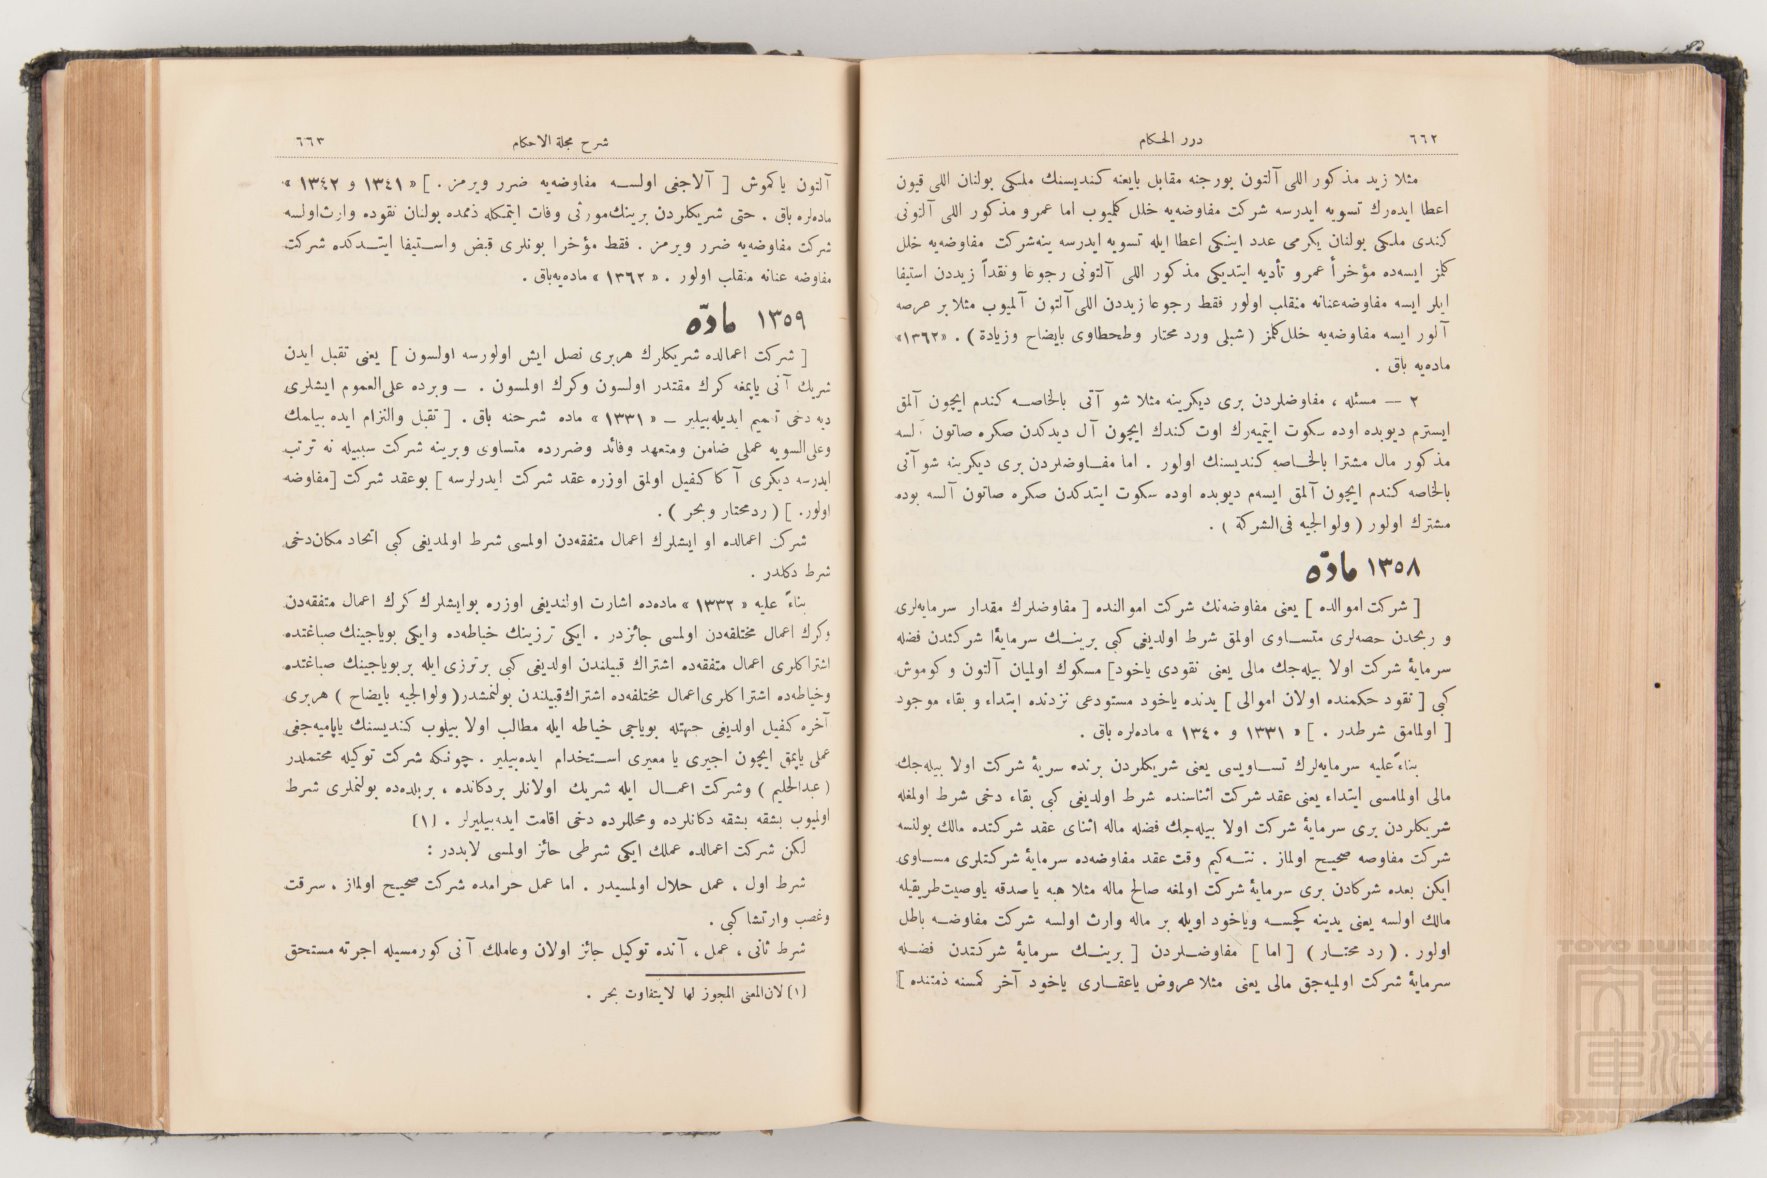 ٦٦٢
درر الحكام
مثلا زيد مذكور اللى آلتون بورجنه مقابل بايعنه كنديسنك ملكى بولنان اللى قيون
اعطا ايده‌رك تسويه ايدرسه شركت مفاوضه‌يه خلل كلميوب اما عمرو مذكور اللى آلتونى
كندى ملكى بولنان يكرمى عدد اينكى اعطا ايله تسويه ايدرسه ينه شركت مفاوضه‌يه خلل
كلمز ايسه‌ده مؤخراً عمرو تأديه ايتديكى مذكور اللى آلتونى رجوعا ونقداً زيددن استيفا
ايلر ايسه مفاوضه عنانه منقلب اولور فقط رجوعا زيددن اللى آلتون آلميوب مثلا بر عرصه
آلور ايسه مفاوضه‌يه خلل كلمز (شبلى ورد محتار وطحطاوى بايضاح وزيادة) . «١٣٦٢»
ماده‌يه باق .
٢ — مسئله ، مفاوضلردن برى ديكرينه مثلا شو آتى بالخاصه كندم ايچون آلمق
ايسترم ديوبده اوده سكوت ايتميه‌رك اوت كندك ايچون آل ديدكدن صكره صاتون آلسه
مذكور مال مشترا بالخاصه كنديسنك اولور . اما مفاوضلردن برى ديكرينه شو آتى
بالخاصه كندم ايچون آلمق ايسه‌م ديوبده اوده سكوت ايتدكدن صكره صاتون آلسه بوده
مشترك اولور (ولوالجيه فى‌الشركة) .
١٣٥٨ مادّه
[ شركت اموالده ] يعنى مفاوضه‌نك شركت اموالنده [ مفاوضلرك مقدار سرمايه‌لرى
و ربحدن حصه‌لرى متساوى اولمق شرط اولديغى كبى برينك سرمايۀ شركتدن فضله
سرمايۀ شركت اولا بيله‌جك مالى يعنى نقودى ياخود] مسكوك اولميان آلتون و كوموش
كبى [ نقود حكمنده اولان اموالى ] يدنده ياخود مستودعى نزدنده ابتداء و بقاء موجود
[ اولمامق شرطدر . ] « ١٣٣١ و ١٣٤٠ » ماده‌لره باق .
بناءً عليه سرمايه‌لرك تساويسى يعنى شريكلردن برنده سرمايۀ شركت اولا بيله‌جك
مالى اولمامسى ابتداء يعنى عقد شركت اثناسنده شرط اولديغى كبى بقاء دخى شرط اولمغله
شريكلردن برى سرمايۀ شركت اولا بيله‌جك فضله ماله اثناى عقد شركتده مالك بولنسه
شركت مفاوضه صحيح اولماز . نته‌كيم وقت عقد مفاوضه‌ده سرمايۀ شركتلرى مساوى
ايكن بعده شركادن برى سرمايۀ شركت اولمغه صالح ماله مثلا هبه يا صدقه ياوصيت طريقيله
مالك اولسه يعنى يدينه كچسه وياخود اويله بر ماله وارث اولسه شركت مفاوضه باطل
اولور . ( رد محتار ) [ اما ] مفاوضلردن [ برينك سرمايۀ شركتدن فضله
سرمايۀ شركت اولميه‌جق مالى يعنى مثلا عروض ياعقارى ياخود آخر كمسنه ذمتنده ]
شرح مجلة الاحكام
٦٦٣
آلتون ياكموش [ آلاجغى اولسه مفاوضه‌يه ضرر ويرمز . ] « ١٣٤١ و ١٣٤٢ »
ماده‌لره باق . حتى شريكلردن برينك مورثى وفات ايتمكله ذممده بولنان نقوده وارث اولسه
شركت مفاوضه‌يه ضرر ويرمز . فقط مؤخرا بونلرى قبض واستيفا ايتدكده شركت
مفاوضه عنانه منقلب اولور . « ١٣٦٢ » ماده‌يه باق .
١٣٥٩ مادّه
[ شركت اعمالده شريكلرك هربرى نصل ايش اولورسه اولسون ] يعنى تقبل ايدن
شريك آنى يابمغه كرك مقتدر اولسون وكرك اولمسون . — وبرده على‌العموم ايشلرى
ديه دخى تعميم ايديله‌بيلير — « ١٣٣١ » ماده شرحنه باق . [ تقبل والتزام ايده بيلمك
وعلى‌السويه عملى ضامن ومتعهد وفائد وضررده متساوى وبرينه شركت سببيله نه ترتب
ايدرسه ديكرى آكا كفيل اولمق اوزره عقد شركت ايدرلرسه ] بوعقد شركت [مفاوضه
اولور. ] ( ردمحتار وبحر ) .
شركت اعمالده او ايشلرك اعمال متفقه‌دن اولمسى شرط اولمديغى كبى اتحاد مكان دخى
شرط دكلدر .
بناءً عليه « ١٣٣٢ » ماده‌ده اشارت اولنديغى اوزره بوايشلرك كرك اعمال متفقه‌دن
وكرك اعمال مختلفه‌دن اولمسى جائزدر . ايكى ترزينك خياطه‌ده وايكى بوياجينك صباغتده
اشتراكلرى اعمال متفقه‌ده اشتراك قبيلندن اولديغى كبى بر ترزى ايله بر بوياجينك صباغتده
وخياطه‌ده اشتراكلرى اعمال مختلفه‌ده اشتراك قبيلندن بولنمشدر( ولوالجيه بايضاح ) هربرى
آخره كفيل اولديغى جهتله بوياجى خياطه ايله مطالب اولا بيلوب كنديسنك ياپاميه‌جغى
عملى ياپمق ايچون اجيرى يا معيرى استخدام ايده‌بيلير . چونكه شركت توكيله محتملدر
( عبدالحليم ) وشركت اعمال ايله شريك اولانلر بردكانده ، بربلده‌ده بولنملرى شرط
اولميوب بشقه بشقه دكانلرده ومحللرده دخى اقامت ايده‌بيليرلر . (١)
لكن شركت اعمالده عملك ايكى شرطى حائز اولمسى لابددر :
شرط اول ، عمل حلال اولمسيدر . اما عمل حرامده شركت صحيح اولماز ، سرقت
وغصب وارتشا كبى .
شرط ثانى ، عمل ، آنده توكيل جائز اولان وعاملك آنى كورمسيله اجرته مستحق
(١) لان‌المعنى المجوز لها لايتفاوت بحر .
TOYO BUNKO
東洋文庫